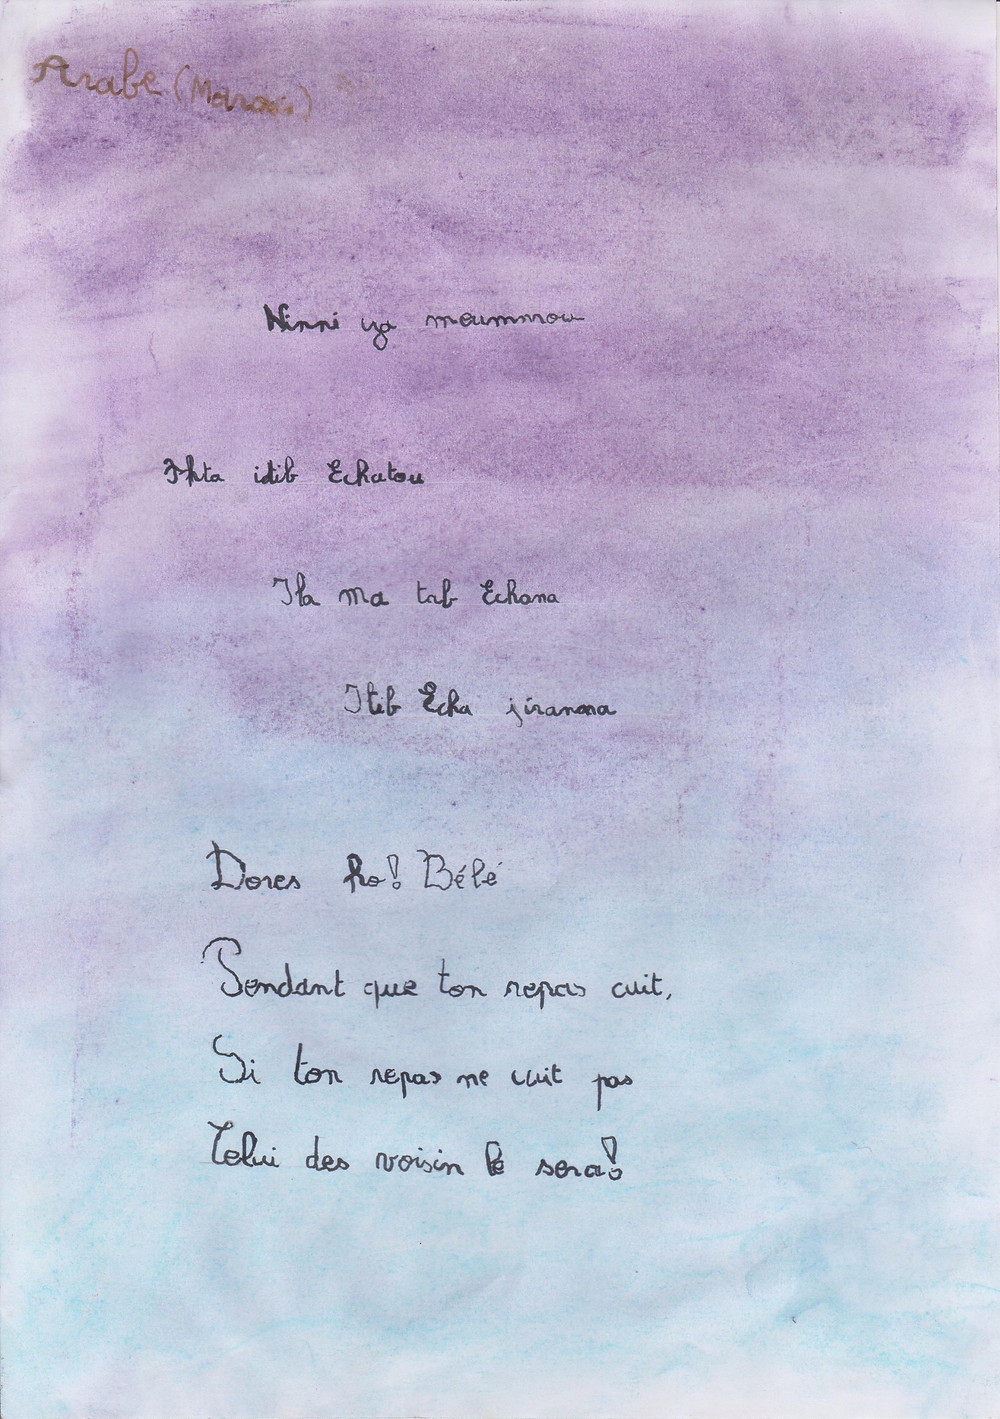 Arabe (Maroc)
Ninni ya moummou
Ihta idib Echatou
Ila ma tab Echana
Itib Echa jiranana
Dores ho! Bébé
Pendant que ton repas cuit,
Si ton repas ne cuit pas
Celui des voisin le sera!